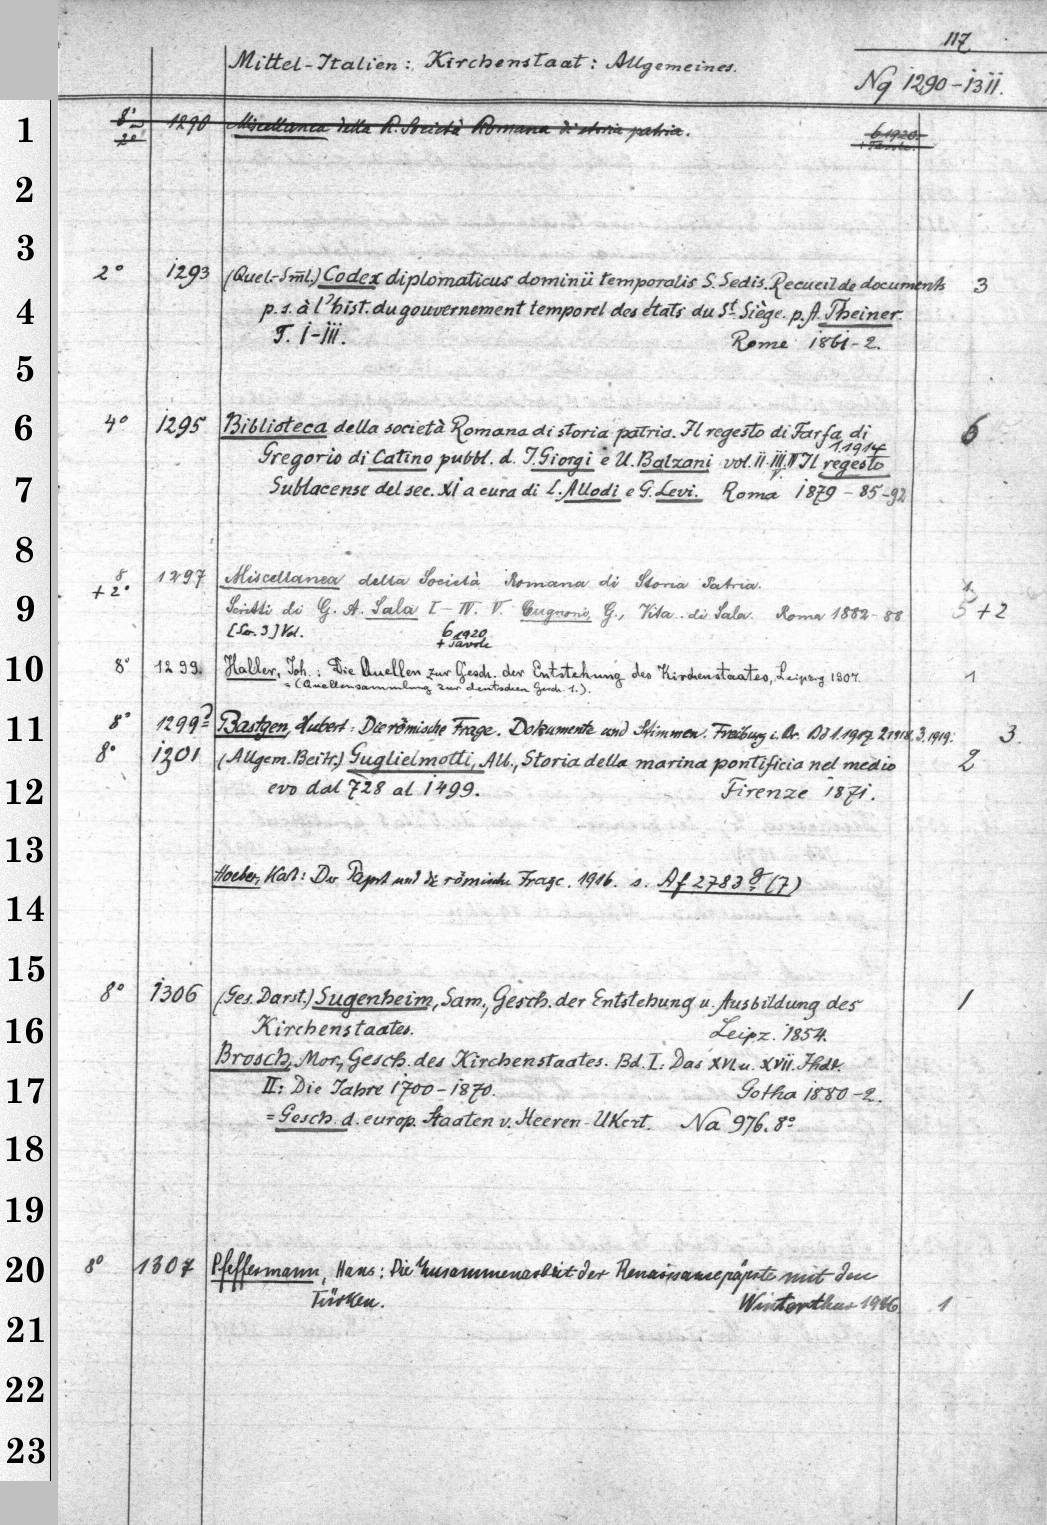 117
Mittel-Italien: Kirchenstaat: Allgemeines.
Nq 1290-1311.
1
8° 1290 Miscellanea della R. Società Romana di storia patria. 6 1920.
2° + Tavole.
2
3
2° 1293 (Quel.-Sml.) Codex diplomaticus dominii temporalis S. Sedis. Recueil de documents 3
4
p. s. à l'hist. du gouvernement temporel des états du St. Siège. p. A. Theiner.
T. I-III. Rome 1861-2.
5
6
4° 1295 Biblioteca della società Romana di storia patria. Il regesto di Farfa di 6
1.1914
Gregorio di Catino pubbl. d. I. Giorgi e U. Balzani vol. II. III. IV Il regesto
V.
7
Sublacense del sec. XI a cura di L. Allodi e G. Levi. Roma 1879-85-92
8
8 1297 Miscellanea della Società Romana di Storia Patria.
+ 2° 1
9
Scritti di G. A. Sala I-IV. V. Cugnoni, G., Vita di Sala Roma 1882-88 5+2
[Ser. 3] Vol. 6 1920
+ Tavole
10
8° 1299. Haller, Joh.: Die Quellen zur Gesch. der Entstehung des Kirchenstaates, Leipzig 1907. 1
= (Quellensammlung zur deutschen Gesch. 1.).
11
8° 1299a Bastgen, Hubert: Die römische Frage. Dokumente und Stimmen. Freiburg i. Br. Bd 1.1917. 2 1918. 3.1919. 3.
8° 1301 (Allgem. Beitr.) Guglielmotti, Alb., Storia della marina pontificia nel medio 2
12
evo dal 728 al 1499. Firenze 1871.
13
Hoeber, Karl: Der Papst und die römische Frage. 1916. s. Af 2783 g (7)
14
15
8° 1306 (Ges. Darst.) Sugenheim, Sam., Gesch. der Entstehung u. Ausbildung des 1
16
Kirchenstaates. Leipz. 1854.
Brosch, Mor., Gesch. des Kirchenstaates. Bd. I: Das XVI. u. XVII. Jhdt.
17
II: Die Jahre 1700-1870. Gotha 1880-2.
= Gesch. d. europ. Staaten v. Heeren-Ukert. Na 976. 8°
18
19
20
8° 1307 Pfeffermann, Hans: Die Zusammenarbeit der Renaissancepäpste mit den
Türken. Winterthur 1946 1
21
22
23